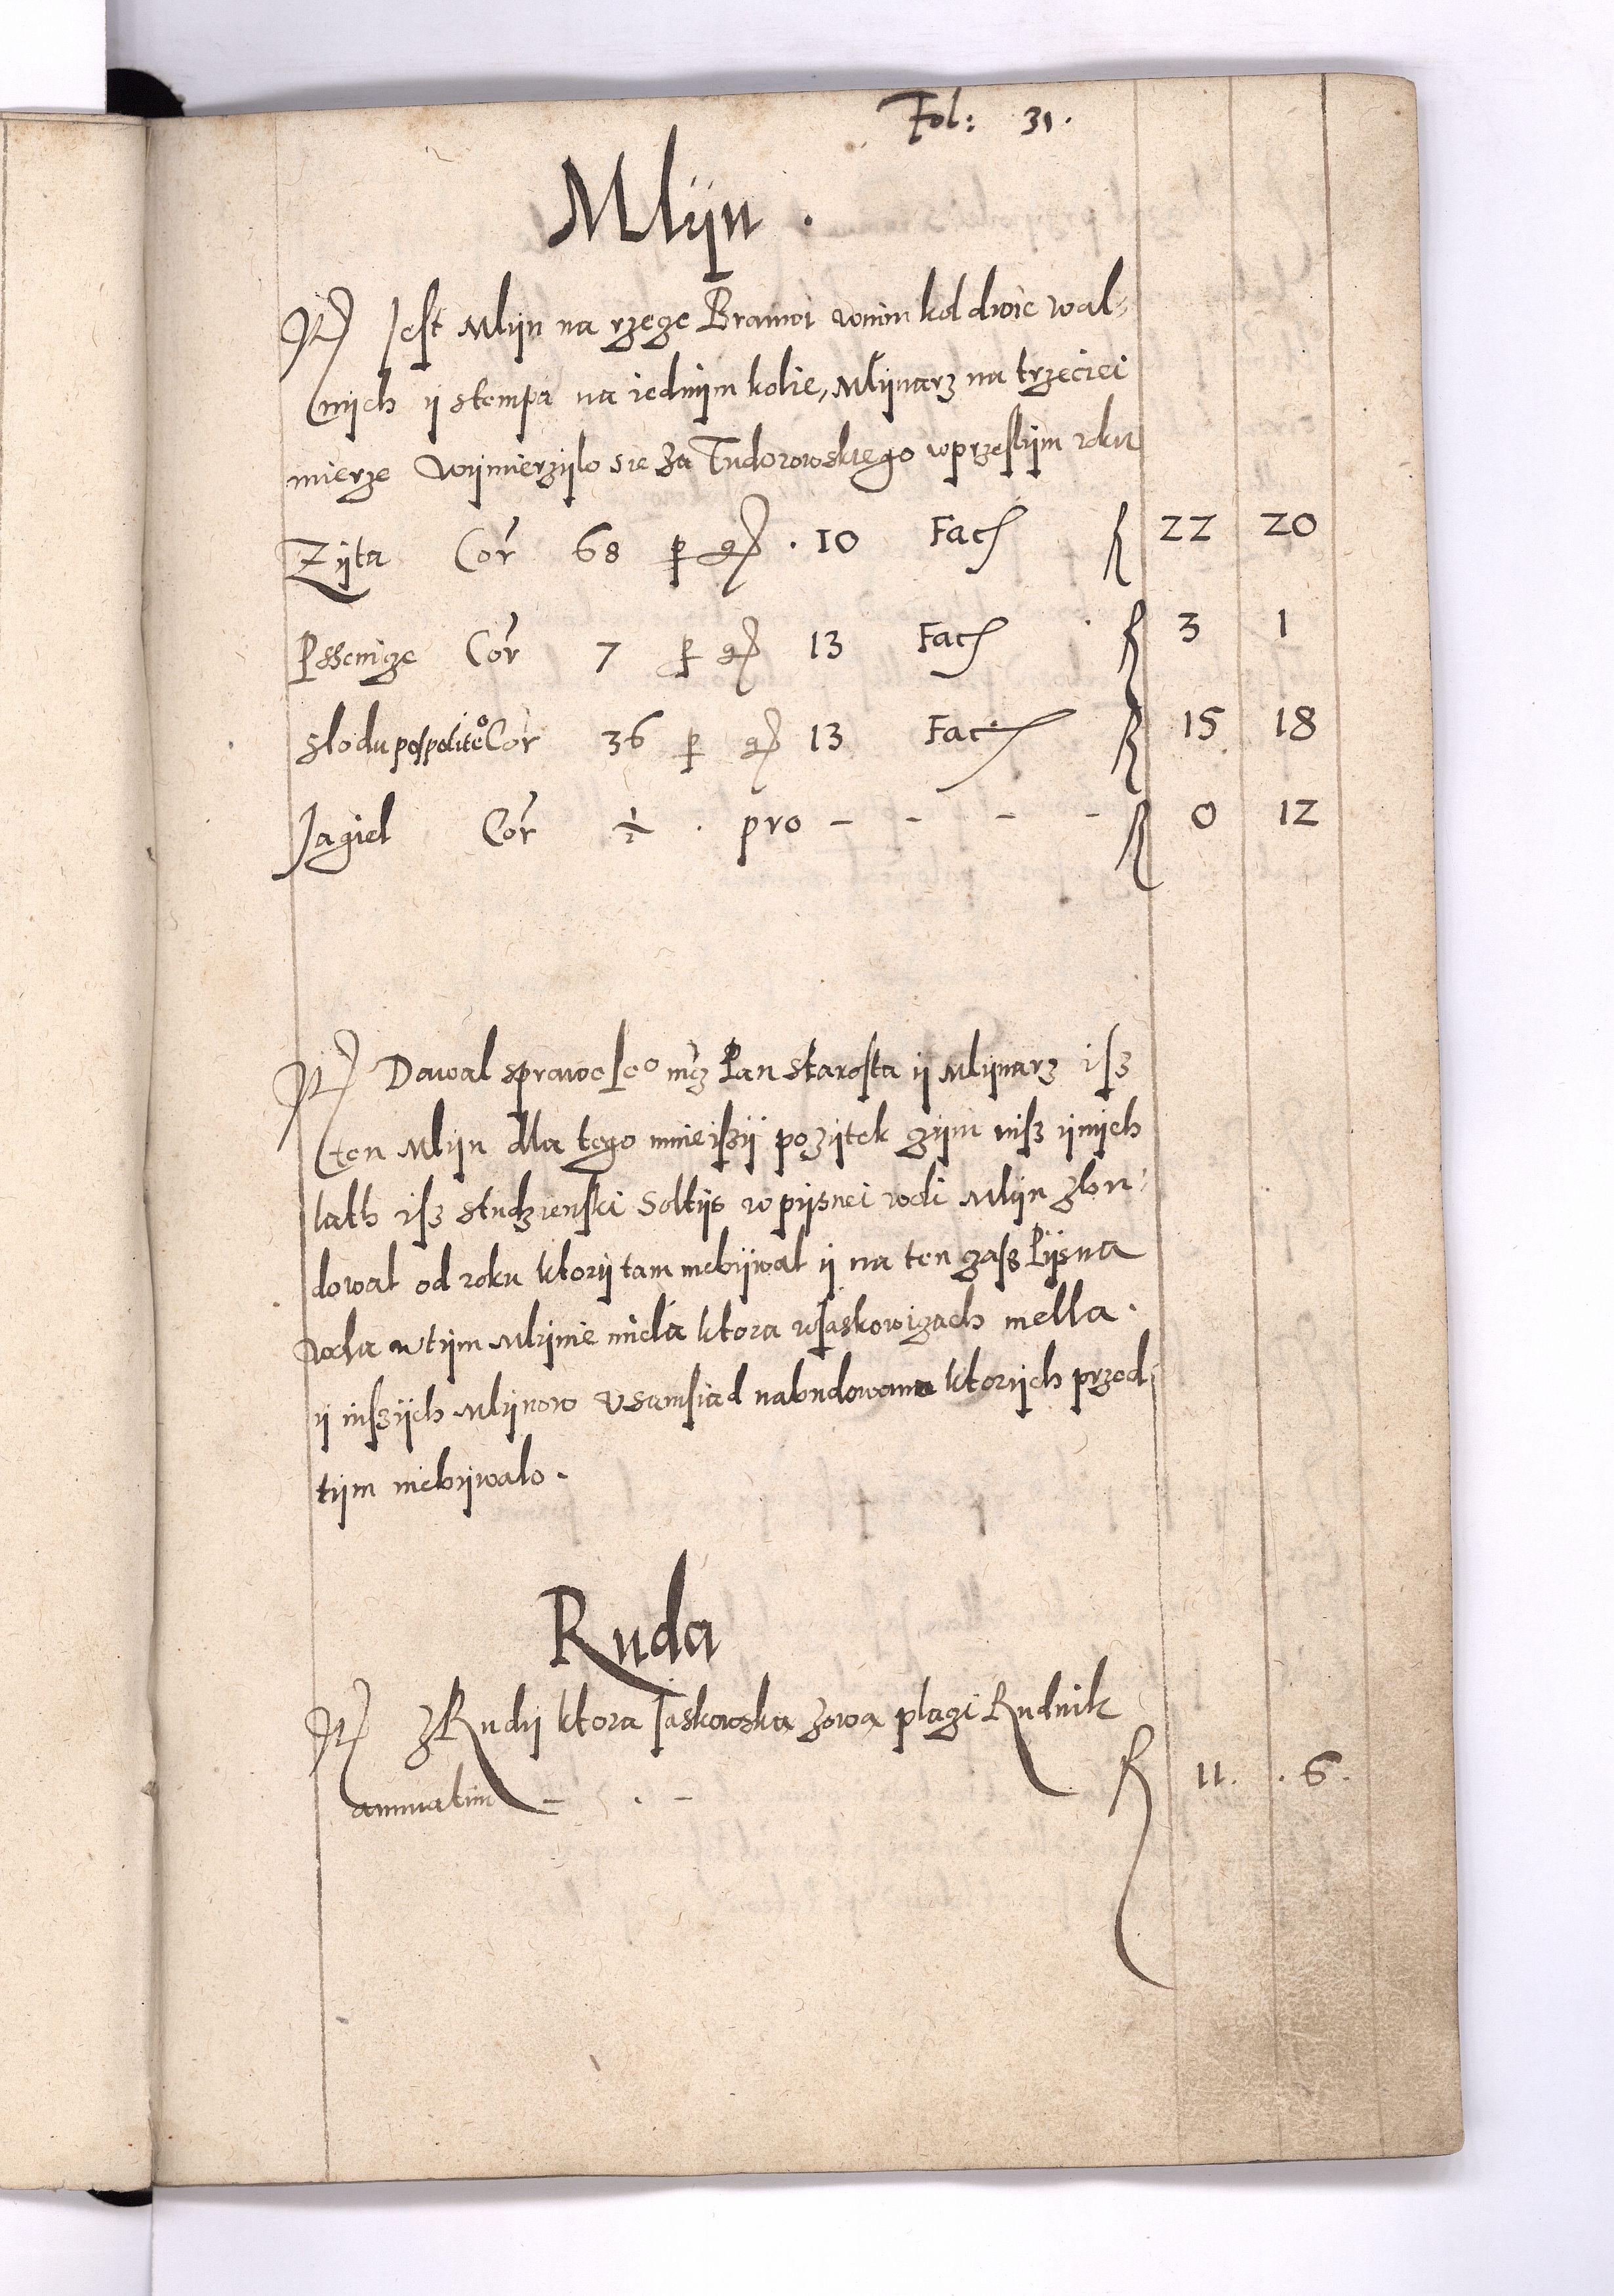 Fol: 31.
Mlijn.
It Jest Mlijn na rzeze Bramwi wnim kol dwie wal-
nijch ij stempa na iednijm kolie, Mlijnarz na trzeciei
mierze Wijmierzijlo sie za Tudorowskiego wprzeslijm roku
Zijta Cor 68 p gr. 10 Fac R 22 20
Pssenize Cor 7 p gr 13 Fac R 3 1
slodu pospolite° Cor 36 p gr 13 Fac R 15 18
Jagiel Cor ½ . pro - - - - R 0 12
It Dawal sprawe Je° mcz Pan Starosta ij Mlijnarz isz
ten Mlijn dla tego mnieiszij pozijtek zijni nisz ijnijch
lath isz studzienski Soltijs w pijsnei wodi Mlijn zbu-
dowal od roku ktorij tam niebijwal ij na ten zasz Pijsna
woda wtijm Mlijnie miela ktora wJaskowizach mella.
ij inszijch Mlijnow v samsiad nabudowano ktorijch przed
tijm niebijwalo.
Ruda
It z Rudij ktora Jaskowska zowa plazi Rudnik
annuatim - . - R 11. . 6.